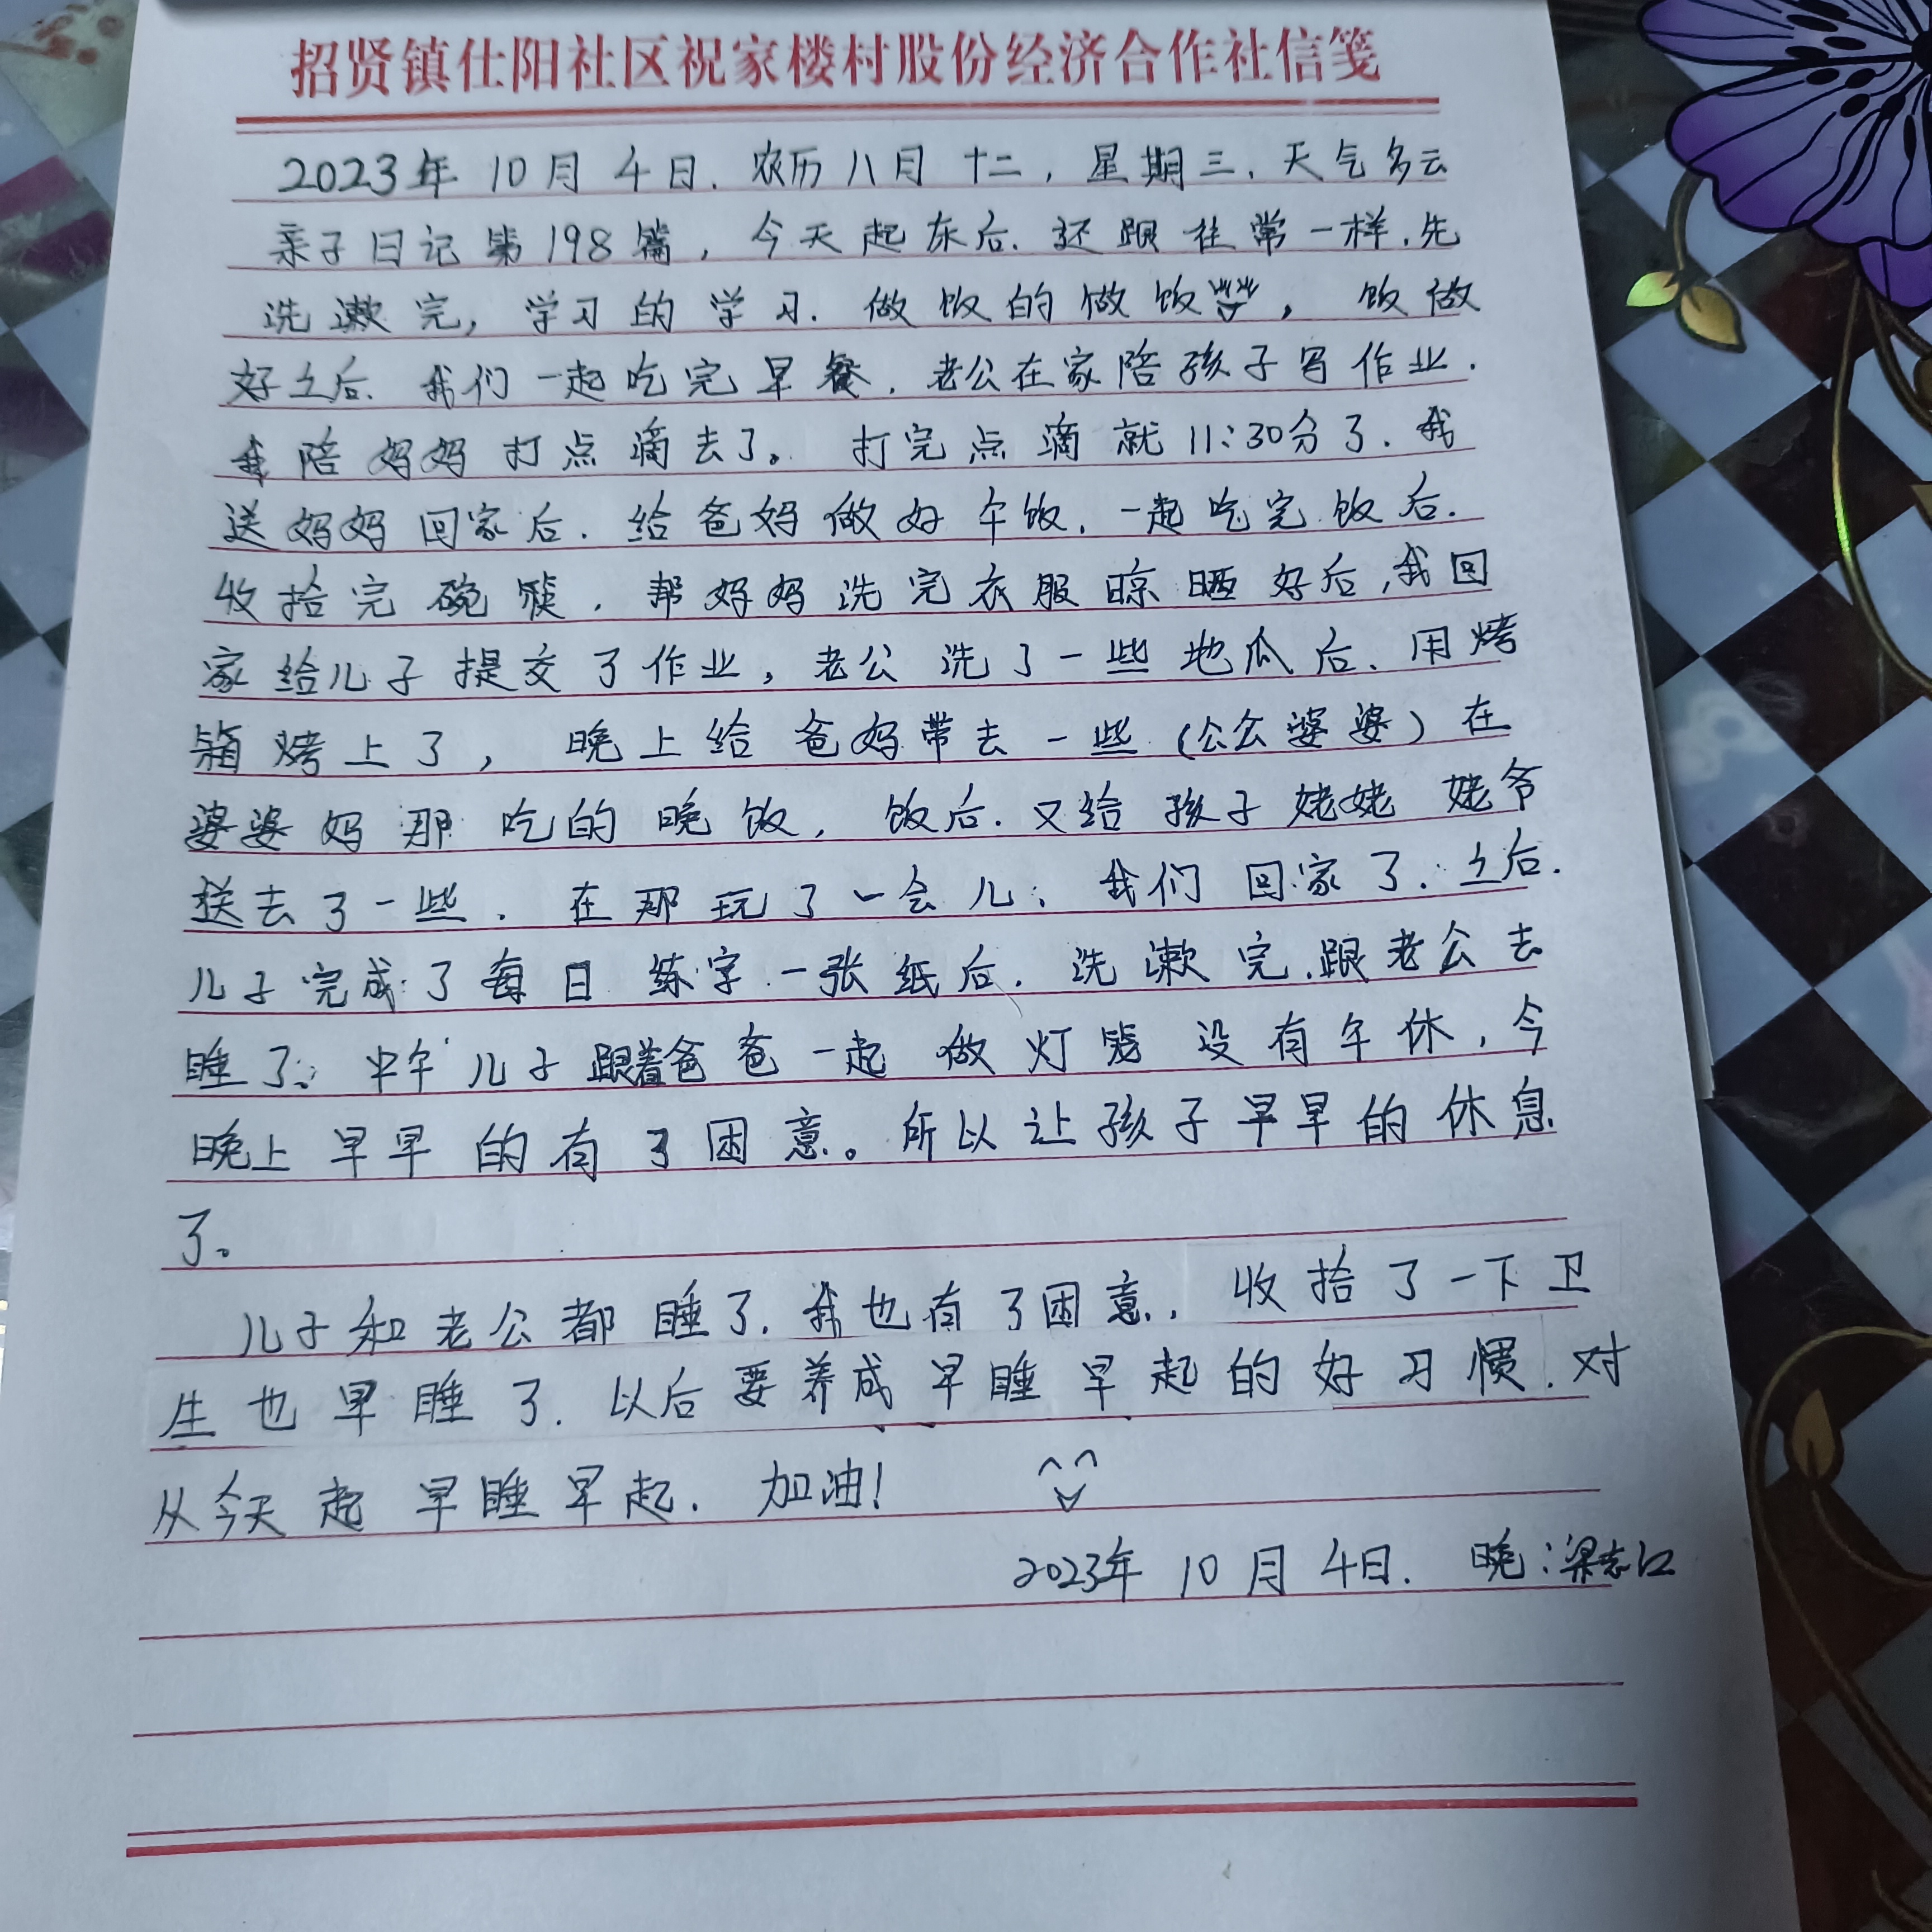 招贤镇仕阳社区祝家楼村股份经济合作社信笺
2023年10月4日.农历八月十二,星期三.天气多云
亲子日记第198篇,今天起床后.还跟往常一样.先
洗漱完,学习的学习.做饭的做饭,饭做
好之后.我们一起吃完早餐.老公在家陪孩子写作业.
我陪妈妈打点滴去了。打完点滴就11:30分了.我
送妈妈回家后.给爸妈做好午饭.一起吃完饭后.
收拾完碗筷.帮妈妈洗完衣服晾晒好后,我回
家给儿子提交了作业,老公洗了一些地瓜后.用烤
箱烤上了,晚上给爸妈带去一些(公公婆婆)在
婆婆妈那吃的晚饭,饭后.又给孩子姥姥姥爷
送去了一些.在那玩了一会儿.我们回家了.之后.
儿子完成了每日练字一张纸后.洗漱完.跟老公去
睡了.中午儿子跟着爸爸一起做灯笼没有午休,今
晚上早早的有了困意。所以让孩子早早的休息
了。
儿子和老公都睡了.我也有了困意.收拾了一下卫
生也早睡了.以后要养成早睡早起的好习惯.对
从今天起早睡早起.加油!
2023年10月4日.晚:梁志江